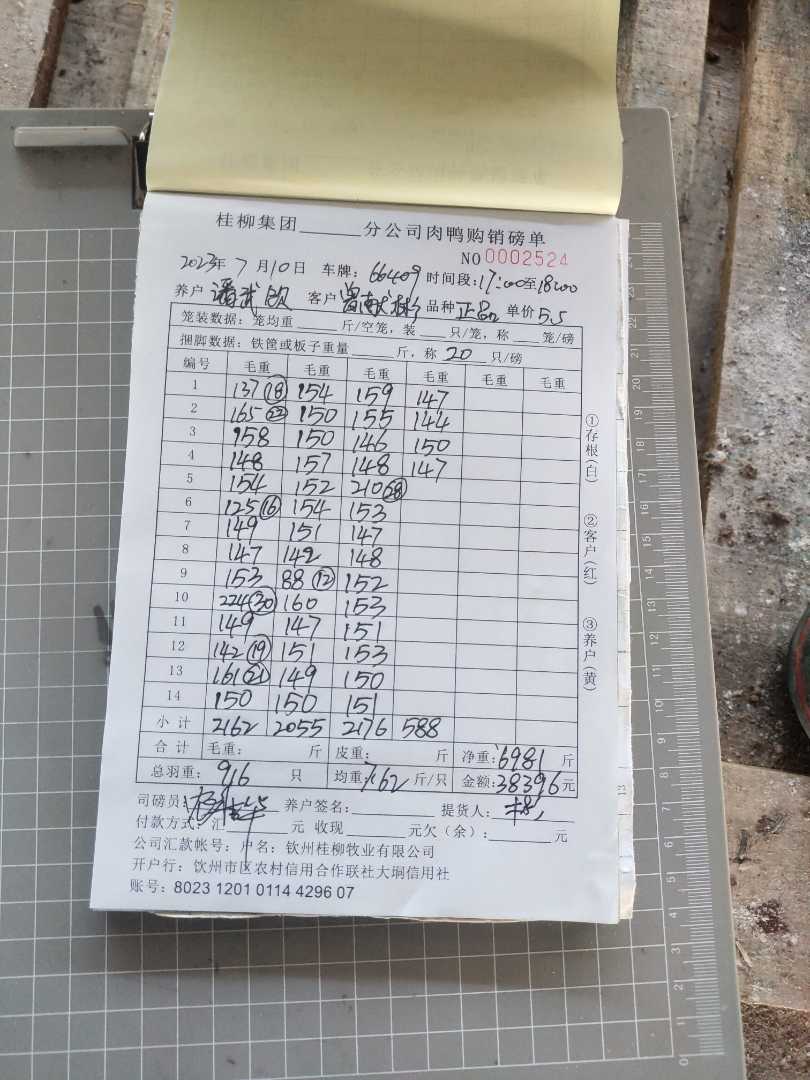 桂柳集团______分公司肉鸭购销磅单
NO 0002524
2023年 7 月 10 日 车牌: 66409 时间段: 17:00至18:00
养户 潘武 客户 品种 正品 单价 5.5
笼装数据: 笼均重 ____ 斤/空笼, 装 ___ 只/笼, 称 ___ 笼/磅
捆脚数据: 铁筐或板子重量 ____ 斤, 称 20 只/磅
编号 毛重 毛重 毛重 毛重 毛重 毛重
1 137 (18) 154 159 147
2 165 (22) 150 155 144
3 158 150 146 150
4 148 157 148 147
5 154 152 210 (28)
6 125 (16) 154 153
7 149 151 147
8 147 142 148
9 153 88 (12) 152
10 224 (30) 160 153
11 149 147 151
12 142 (19) 151 153
13 161 (21) 149 150
14 150 150 151
小计 2162 2055 2176 588
合计 毛重: 斤 皮重: 斤 净重: 6981 斤
总羽重: 916 只 均重: 7.62 斤/只 金额: 38396 元
司磅员: 养户签名: 提货人:
付款方式: 汇______元 收现______元欠(余): ______元
公司汇款帐号: 户名: 钦州桂柳牧业有限公司
开户行: 钦州市区农村信用合作联社大垌信用社
账号: 8023 1201 0114 4296 07
①存根(白)
②客户(红)
③养户(黄)